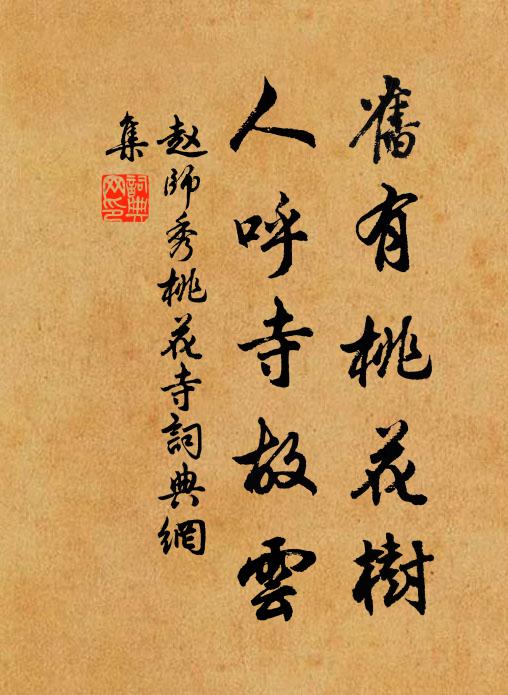 舊有桃花樹
人呼寺故雲
赵師秀桃花寺詞典網
集
詞典
网印